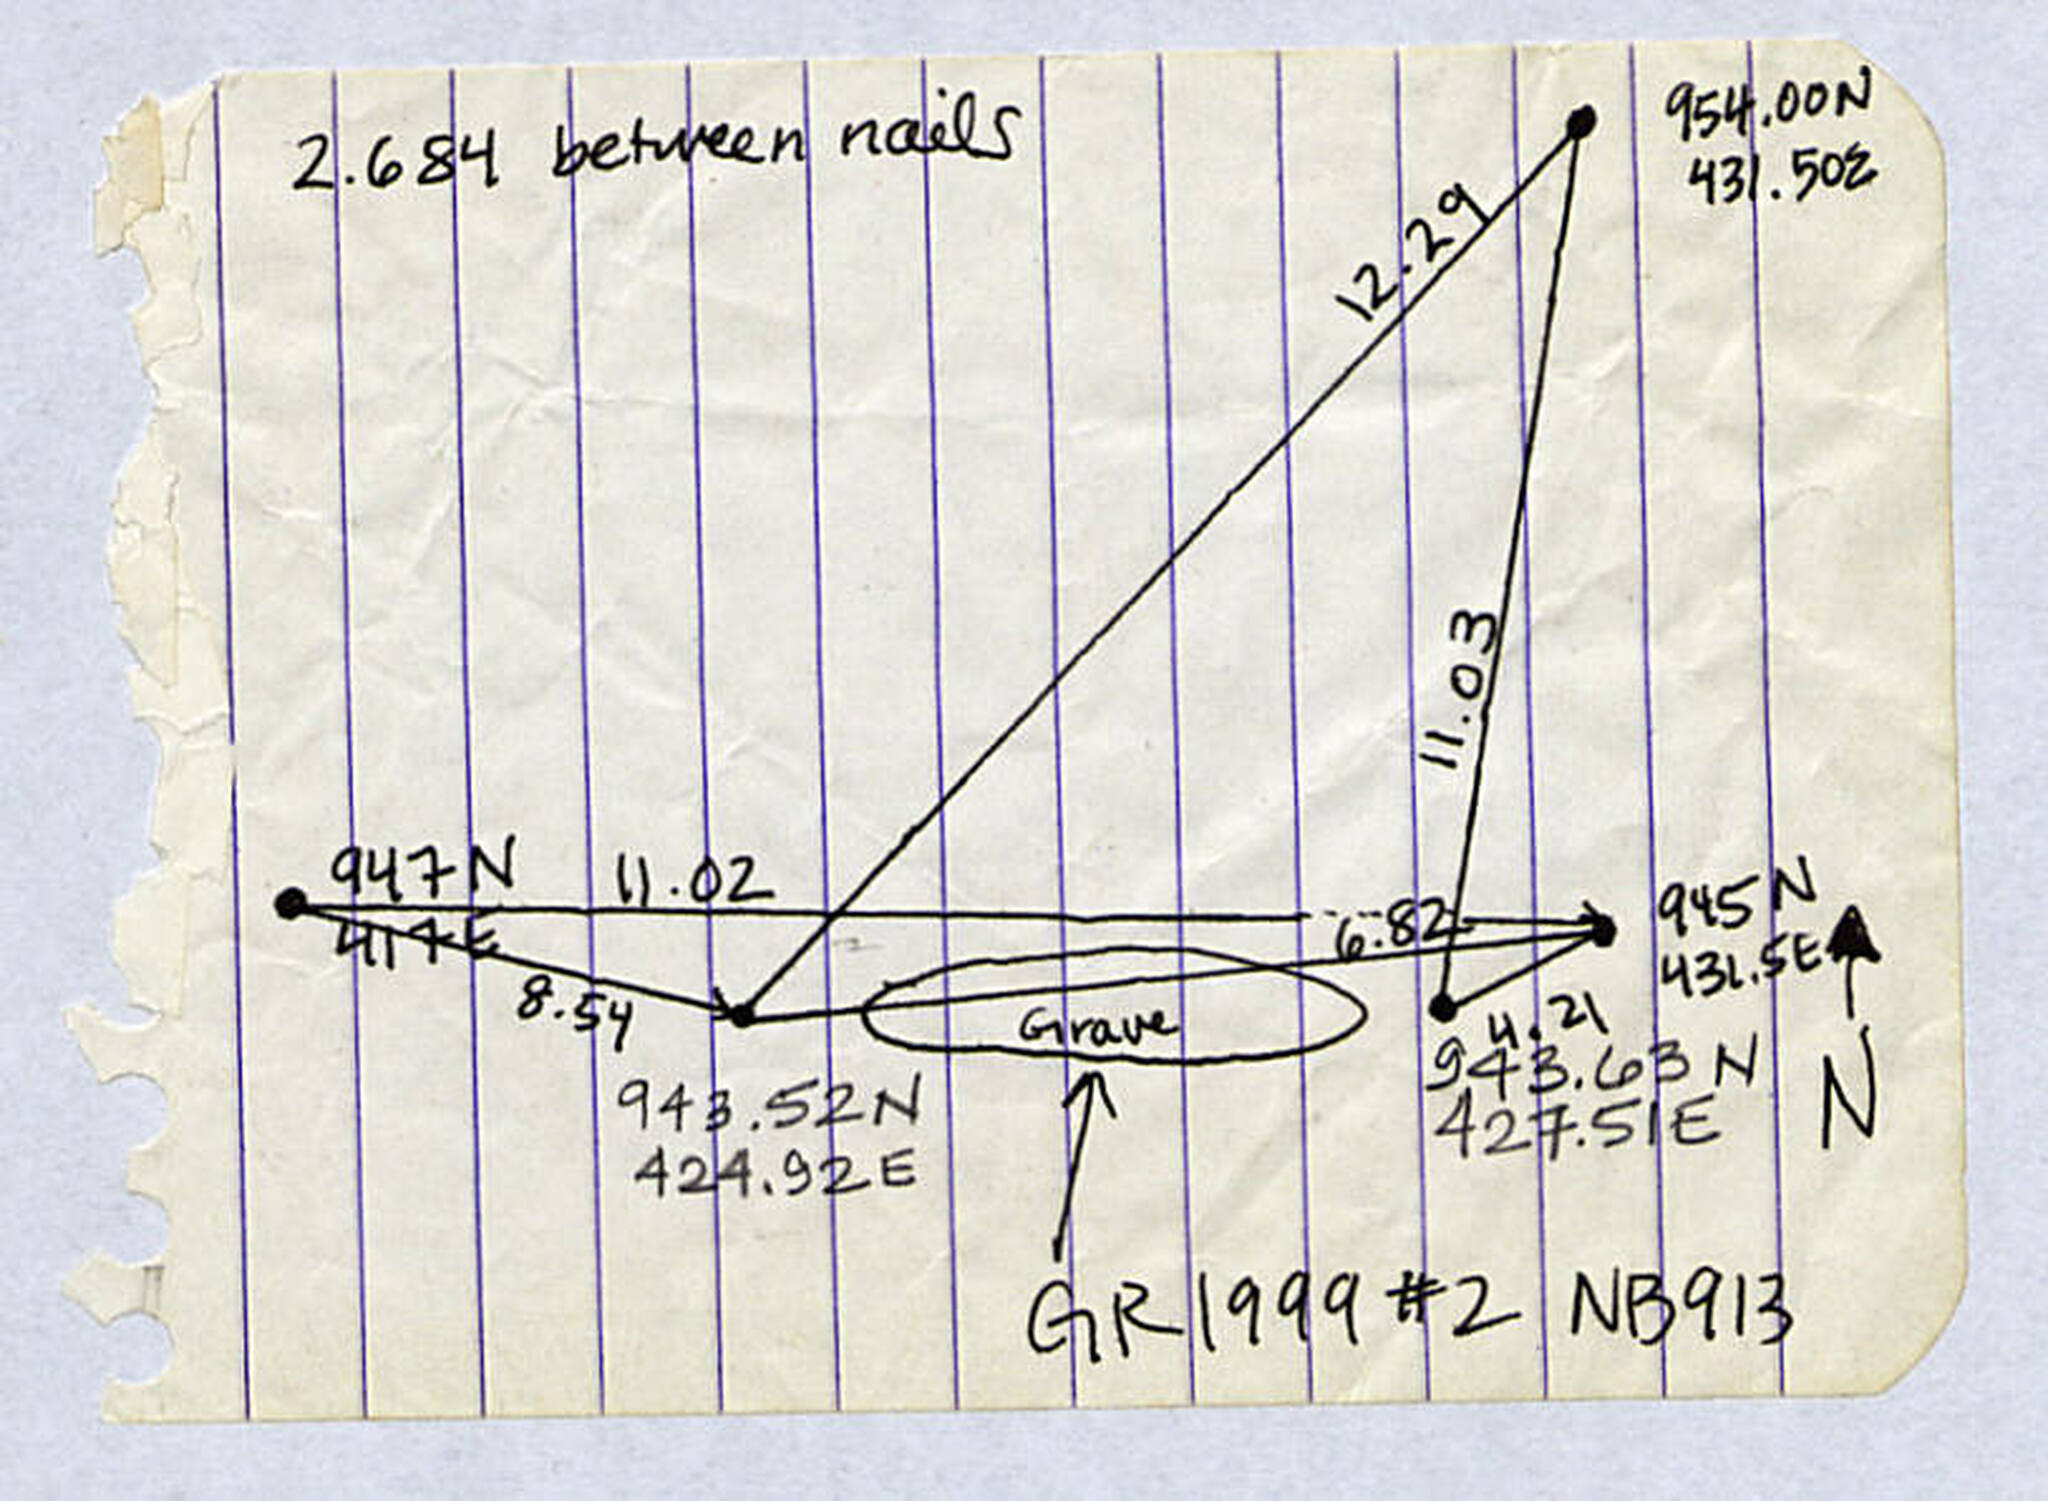 2.684 between nails
954.00N
431.50E
12.29
11.03
947N
417E
11.02
6.82
945N
431.5E
8.54
Grave
4.21
943.63N
427.51E
943.52N
424.92E
N
GR1999 #2 NB913